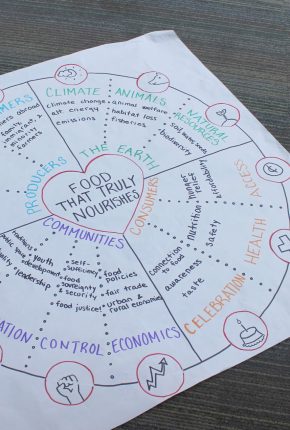 CLIMATE
climate change
alt energy
emissions
ANIMALS
animal welfare
habitat loss
fisheries
NATURAL
RESOURCES
soil, water, seeds
biodiversity
THE EARTH
PRODUCERS
farmers abroad
family,
immigrant, &
minority
farmers
FOOD
THAT TRULY
NOURISHES
CONSUMERS
ACCESS
hunger
affordability
HEALTH
nutrition
safety
CELEBRATION
connection
to food
awareness
taste
COMMUNITIES
youth
development
leadership
CONTROL
self-
sufficiency
food
sovereignty
& security
food justice!
ECONOMICS
food
policies
fair trade
urban &
rural economies